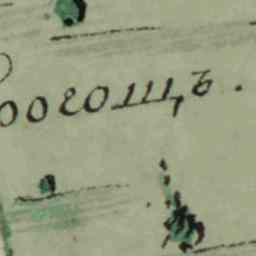 рогощъ.